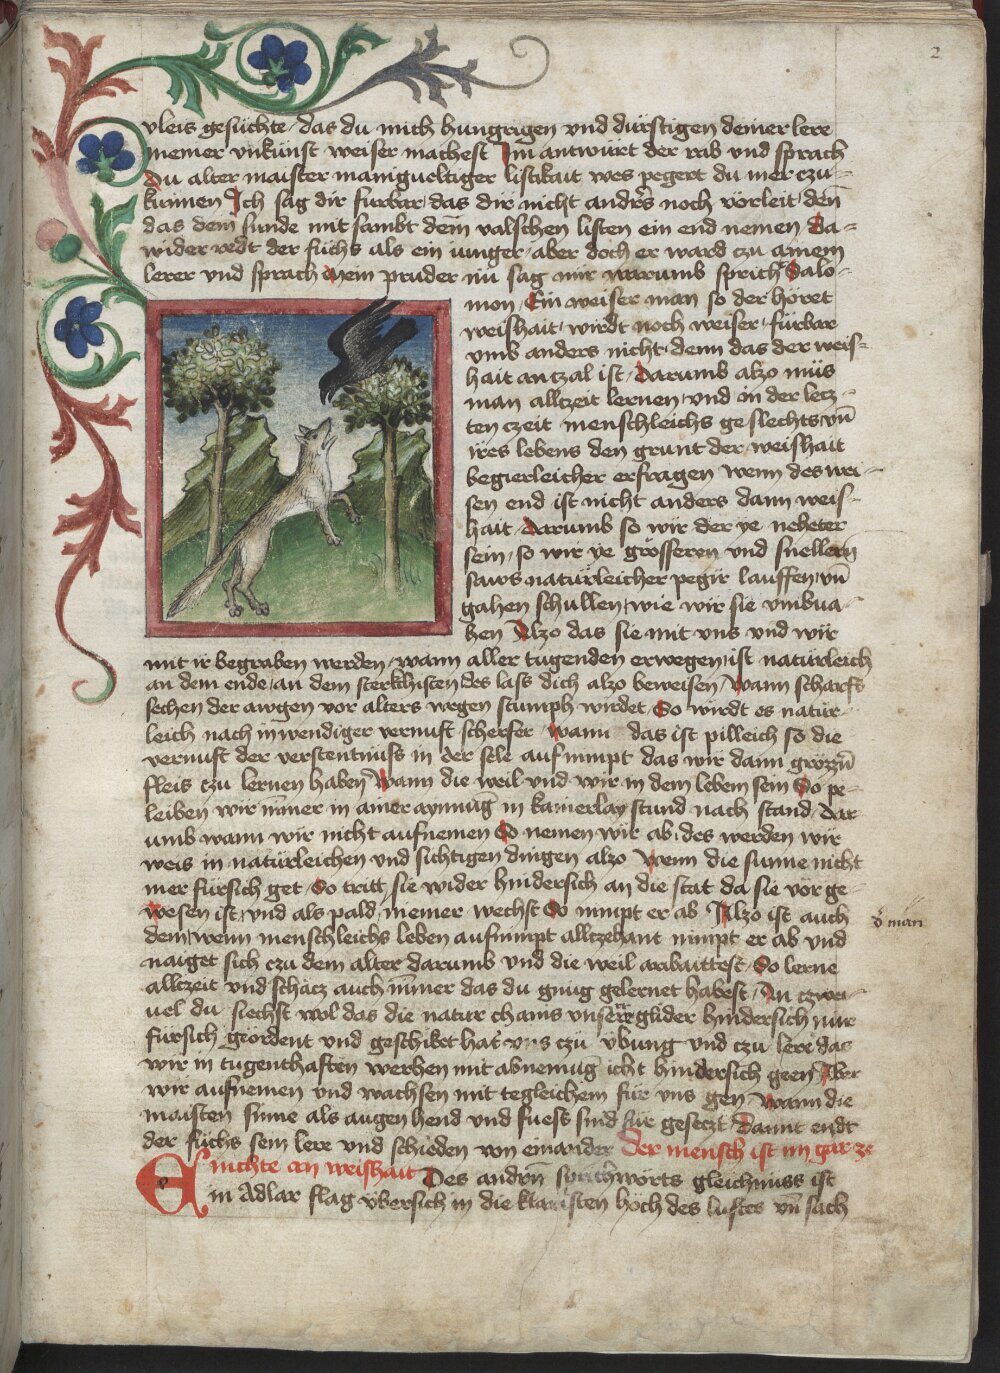 2
vleis gesuchte das du mich hungrigen vnd durstigen deiner lere
meiner vnkunst weiser machest Im antwurt der rab vnd sprach
Du alter maister manigueltiger listikait wes pegert du mer czu
kunnen Ich sag dir furbar das dir nicht anders noch vorleit den̄
das dein sunde mit sambt dem̄ valschen listen ein end nemen Da=
wider redt der fuchs als ein iunger aber doch er ward czu ainem
lerer vnd sprach Mein pruder nu sag mir warumb sprich Salo-
mon Ein weiser man so der höret
weishait wirdt noch weiser furbar
vmb anders nicht denn das der weis=
hait an czal ist Darumb alzo mus
man allczeit lernen vnd in der lecz-
ten czeit menschleichs geslechts vn̄
ires lebens den grunt der weishait
begierleicher erfragen Wenn des wei-
sen end ist nicht anders dann weis-
hait Darumb so wir der ye neheter
sein so wir ye grösseren vnd snellern
natürleicher pegir lauffen vn̄
gahen schullen wie wir sie vmbua-
hen Alzo das sie mit vns vnd wir
mit ir begraben werden wann aller tugenden erwegen ist naturleich
an dem ende an dem sterkchisten des lass dich alzo beweisen Wann scharfs
sechen der awgen vor alters wegen stumph wirdet So wirdt es natur-
leich nach inwendiger vernuft scherfer Wann das ist pilleich so die
vernuft der verstentnuss in der sele aufnimpt das wir dann grozzn̄
fleis czu lernen haben Wann die weil vnd wir in dem leben sein So pe-
leiben wir nimer in ainer aynnug in kainerlay stund nach stand dar
umb wann wir nicht aufnemen So nemen wir ab des werden wir
weis in naturleichen vnd sichtigen dingen alzo Wenn die sunne nicht
mer fürsich get So tritt sie wider hindersich an die stat da sie vor ge-
wesen ist vnd als pald niemer wechst So nimpt er ab Alzo ist auch
dem wenn menschleichs leben aufnimpt allczehant nimpt er ab vnd
naiget sich czu dem alter darumb vnd die weil arbaittest So lerne
allczeit vnd schacz auch nimer das du gnug gelernet habest An czwei-
uel du siechst wol das die natur chains vnserr glider hindersich nur
fürsich geordent vnd geschiket hat vns czu vbung vnd czu lere das
wir in tugenthaften werken mit abnemug icht hindersich geen Aber
wir aufnemen vnd wachsen mit tegleichem für vns gen Wann die
maisten sinne als augen hend vnd fuess sind für geseczt Damit endt
der fuchs sein lere vnd schieden von einander Der mensch ist im gar ze
nichte an weishait Des andrn̄ sprichworts gleichnuss ist
Ein Adlar flag vbersich in die klaristen höch des luftes vn̄ sach
d man